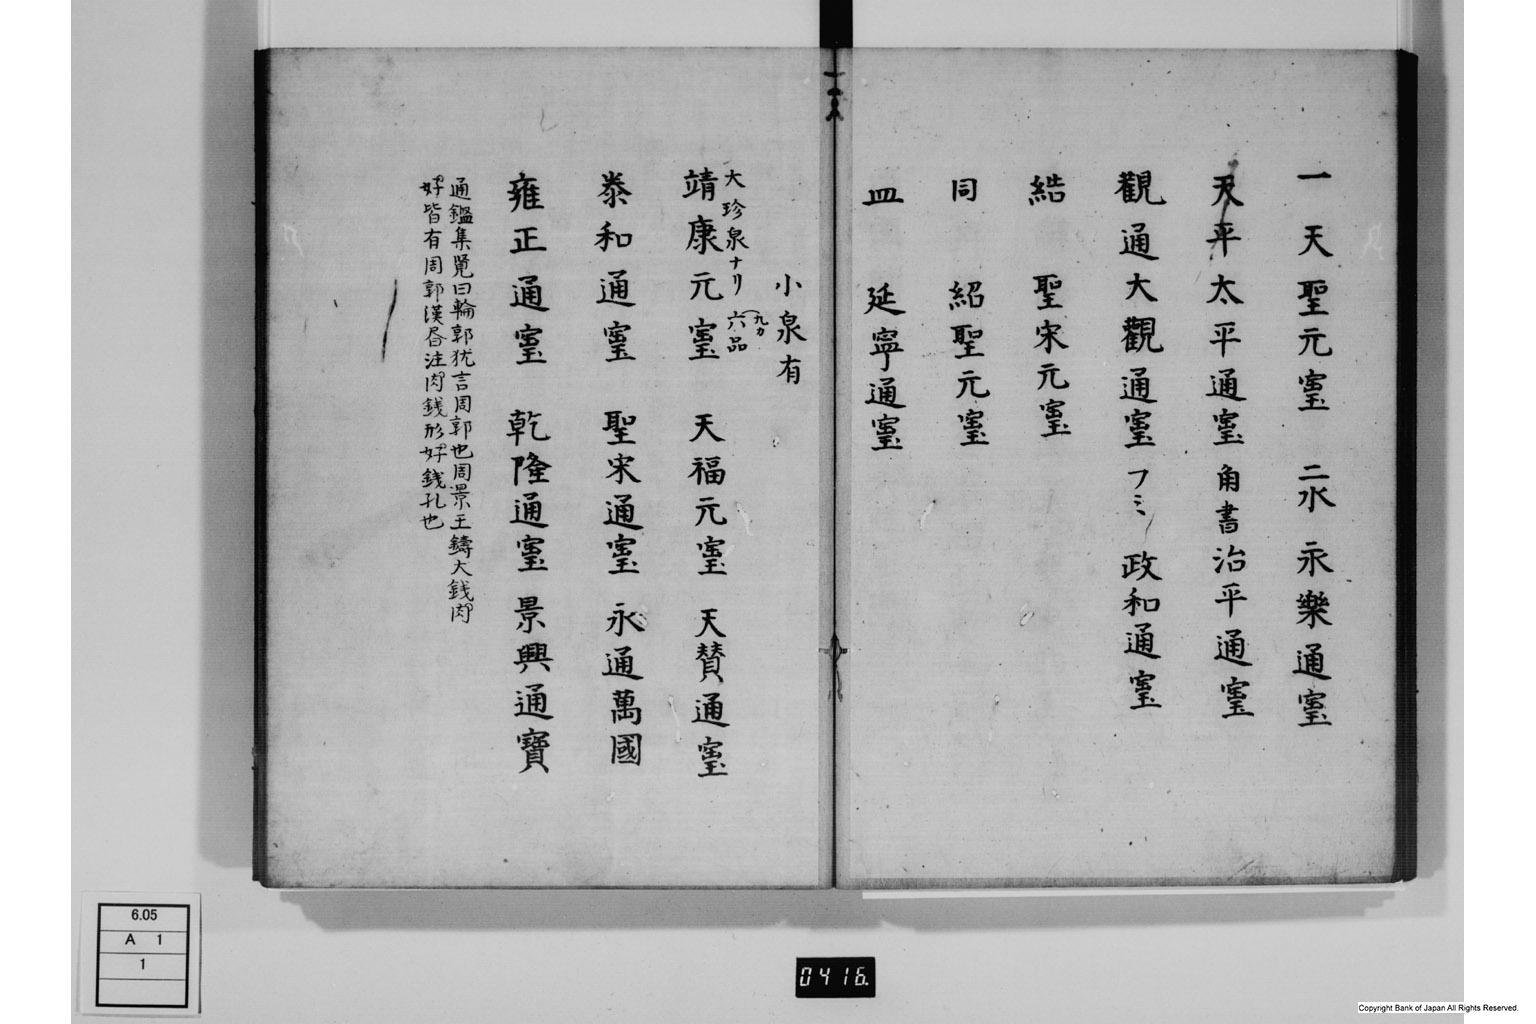 一 天聖元寳 二水 永樂通寳
天平太平通寳 角書 治平通寳
觀通大觀通寳 フミ 政和通寳
結 聖宋元寳
同 紹聖元寳
皿 延寧通寳
小泉有
大珍泉ナリ 六品
九カ
靖康元寳 天福元寳 天賛通寳
泰和通寳 聖宋通寳 永通萬國
雍正通寳 乾隆通寳 景興通寶
通鑑集覽曰輪郭犹言周郭也周景王鑄大銭肉
好皆有周郭漢昏注肉銭形好銭孔也
6.05
A 1
1
0416.
Copyright Bank of Japan All Rights Reserved.